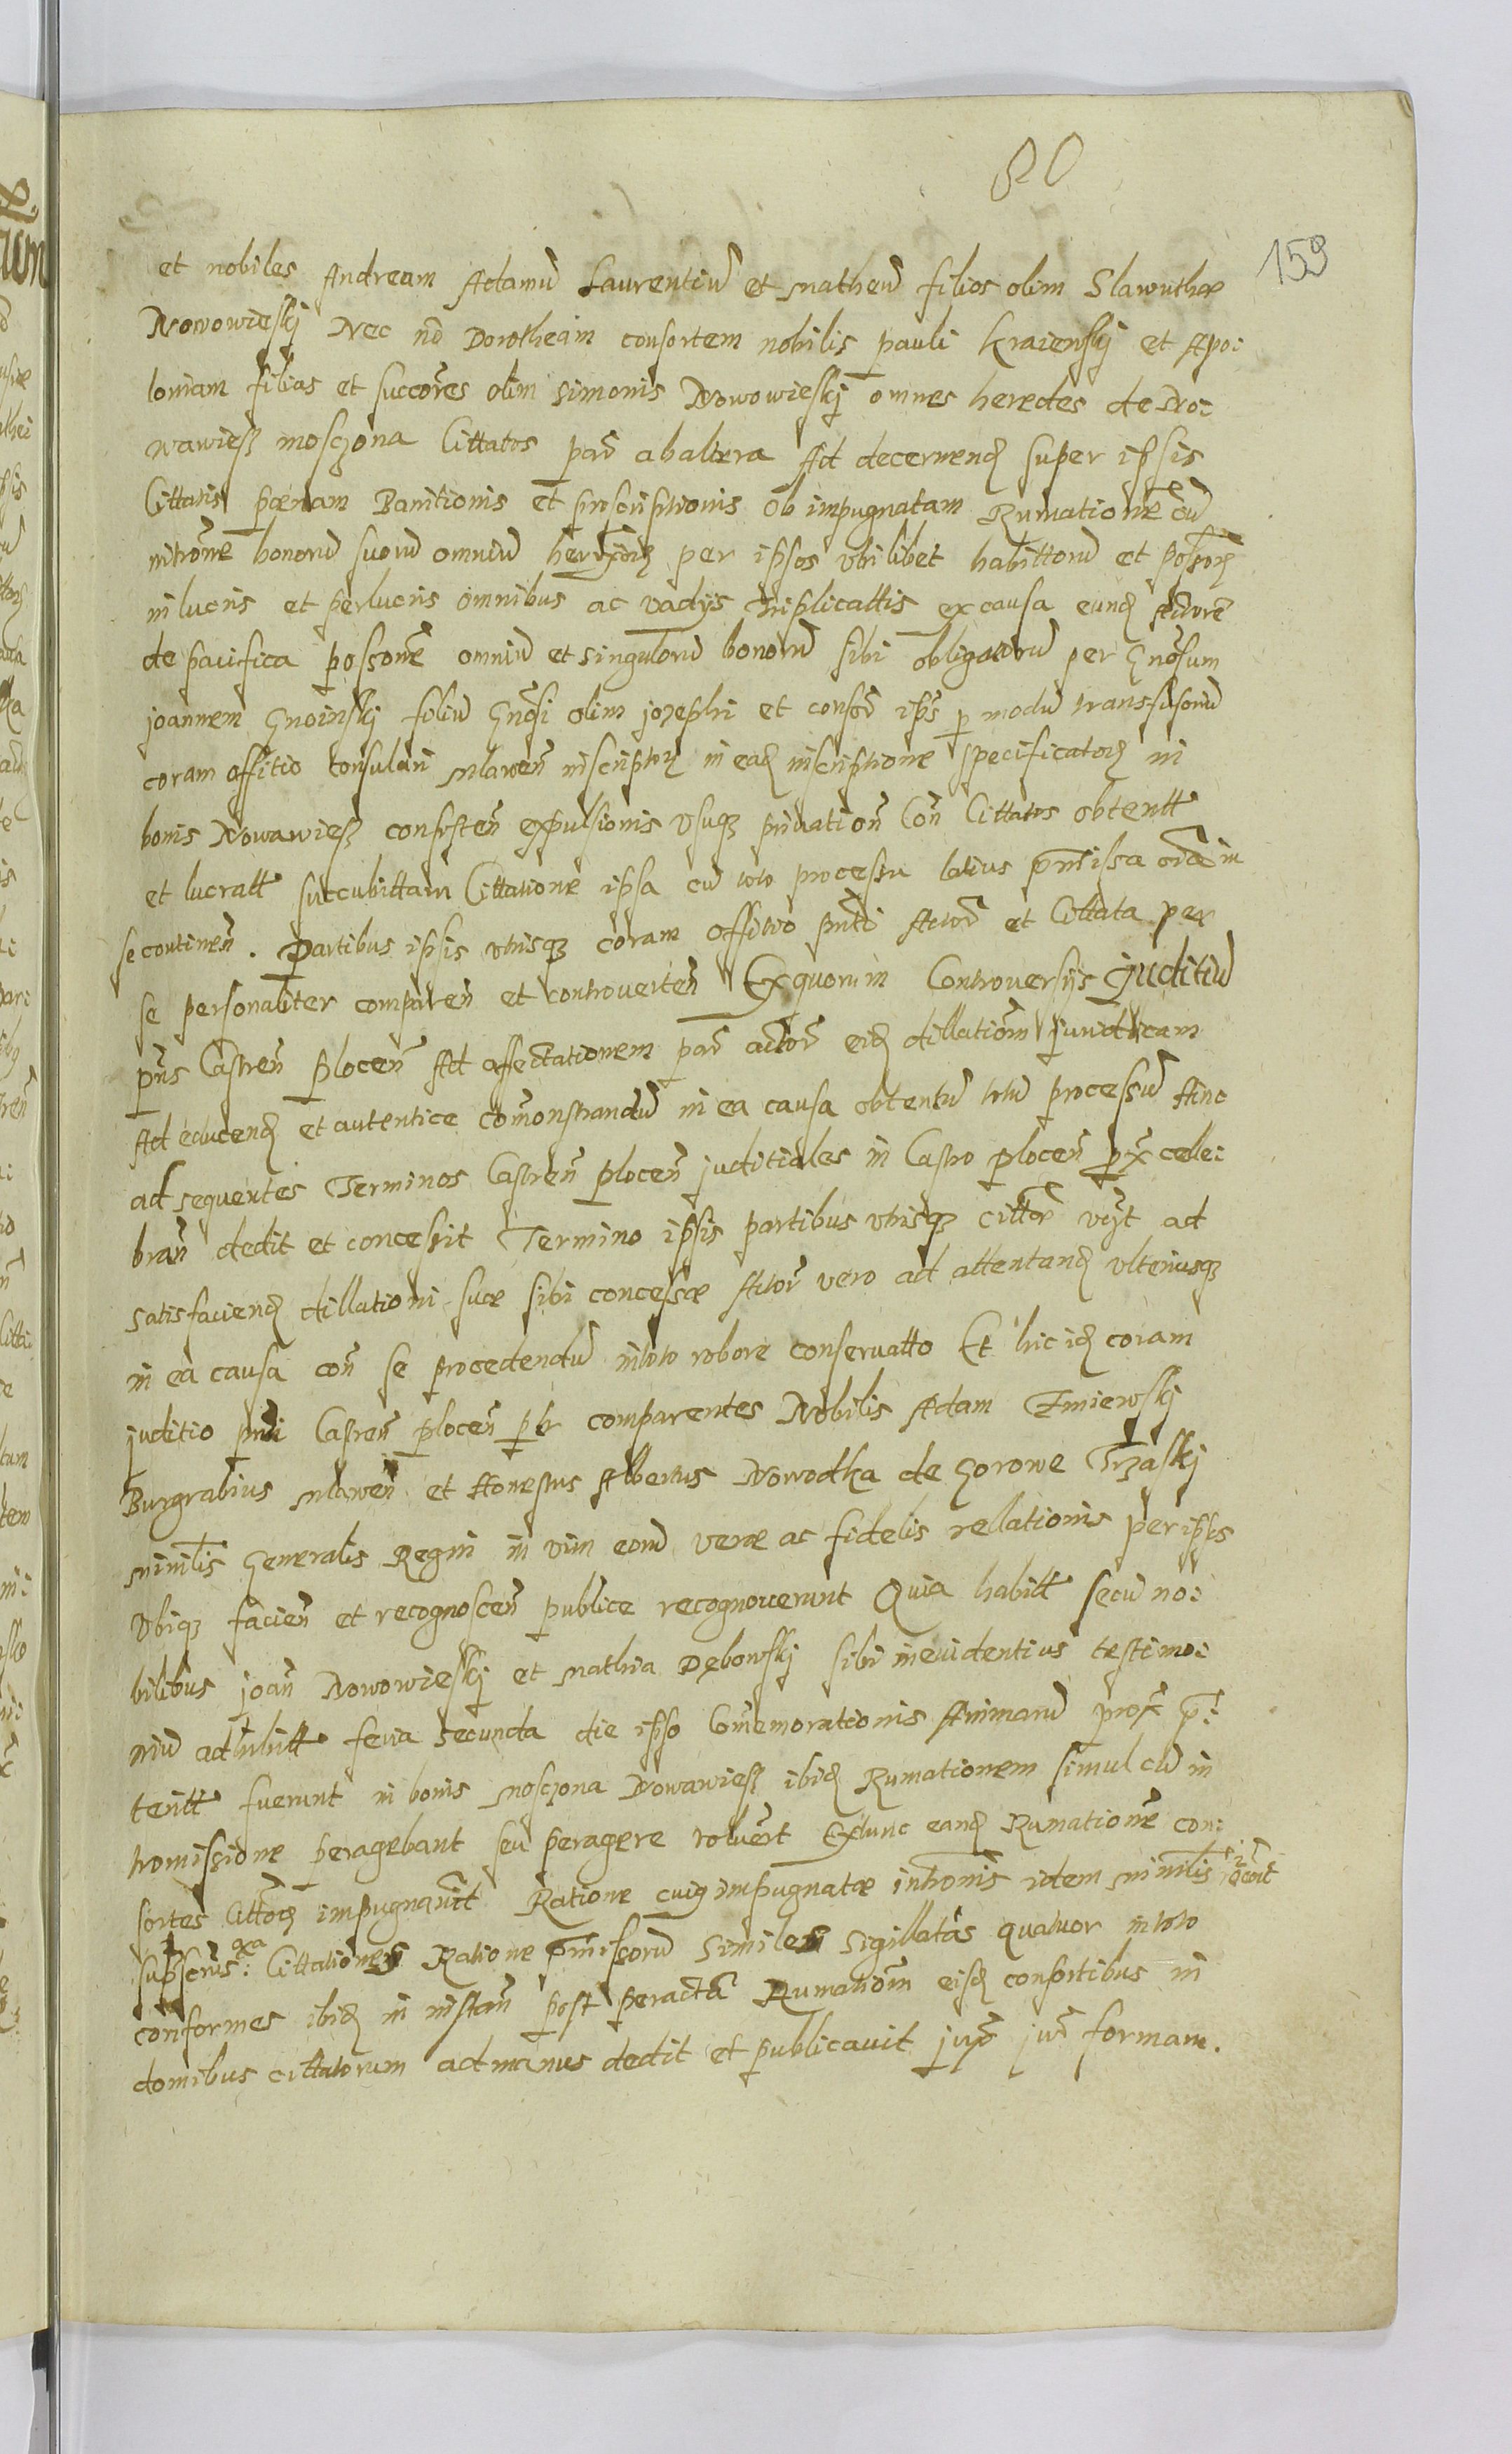 80
159
et nobiles Andream Adamū Laurentiū et Matheū filios olim Slawuthæ
Nowowieskj Nec nō Dorotheam consortem nobilis pauli Kraienskj et Apo:
loniam filias et succores olim Simonis Nowowieskj omnes heredes de No:
wawiesz Mosczona Cittatos par ab altera Ad decernend super ipsis
Cittatis pœnam Banitionis et proscriptionis ob impugnatam Rumationē cū
introm̄e bonorū suorū omniū per ipsos vbilibet habittorū et possor
in lucris et perlucris omnibus ac vadijs triplicattis ex causa eund Actorē
de pacifica possone omniū et singulorū bonorū sibi obligatorū per Gnosum
joannem Gnoinskj filiū Gnosi olim jozephi et consor ips p modū transfusorū
coram offitio consulari Mlawen̄ inscriptor in ead inscriptione specificator in
bonis Nowawiesz consisten̄ expulsionis vsuq privation̄ Con̄ Cittatos obtentt
et lucratt succubittam Cittatione ipsa cū toto processu latius p̄missa oīa in
se continen̄. Partibus ipsis vtrisq coram offitio pn̄ti Actor et Cittata per
se personaliter comparen̄ et controverten̄ Ex quorum Controversijs Juditiū
pn̄s Castren̄ plocen̄ Ad affectationem par actor eid dillationm̄ juridicam
Ad educend et autentice com̄onstrandū in ea causa obtentū totū processū Hinc
ad sequentes Terminos Castren̄ plocen̄ juditiales in Castro plocen̄ px̄ cele:
bran̄ dedit et concessit Termino ipsis partibus vtrisq cittōr ad
satisfaciend dillationi suæ sibi concessæ Actor vero ad attentand vlteriusq
in ea causa con̄ se procedendū in toto robore conservatto Et hic id coram
juditio pn̄ti Castren̄ plocen̄ pbr comparentes Nobilis Adam Zmiewskj
Burgrabius Mlawen̄ et Honestus Albertus Nowodka de Gorowe Trzaskj
Minilis Generalis Regni in vim eorū veræ ac fidelis rellationis per ipsos
Vbiq facien̄ et recognoscen̄ publice recognouerunt Quia habitt secū no:
bilibus joan̄ Nowowieskj et Mathia Dębowskj sibi in evidentius testimo:
niū adhibitt feria secunda die ipso Com̄emorationis Animarū prox p̄:
teritt fuerunt in bonis Mosczona Nowawiesz ibid Rumationem simul cū in
tromissione peragebant seu peragere voluer̄t Extunc eand Rumationē con:
sortes Cittōr impugnaver̄t Ratione cuig impugnatæ introm̄is idem Minilis
Cittationes Ratione p̄missorū similes sigillatas quatuor in toto
conformes ibid in instan̄ post peractā Rumatiōm eisd consortibus in
domibus cittatorum ad manus dedit et publicavit jux̄ jur̄ formam.